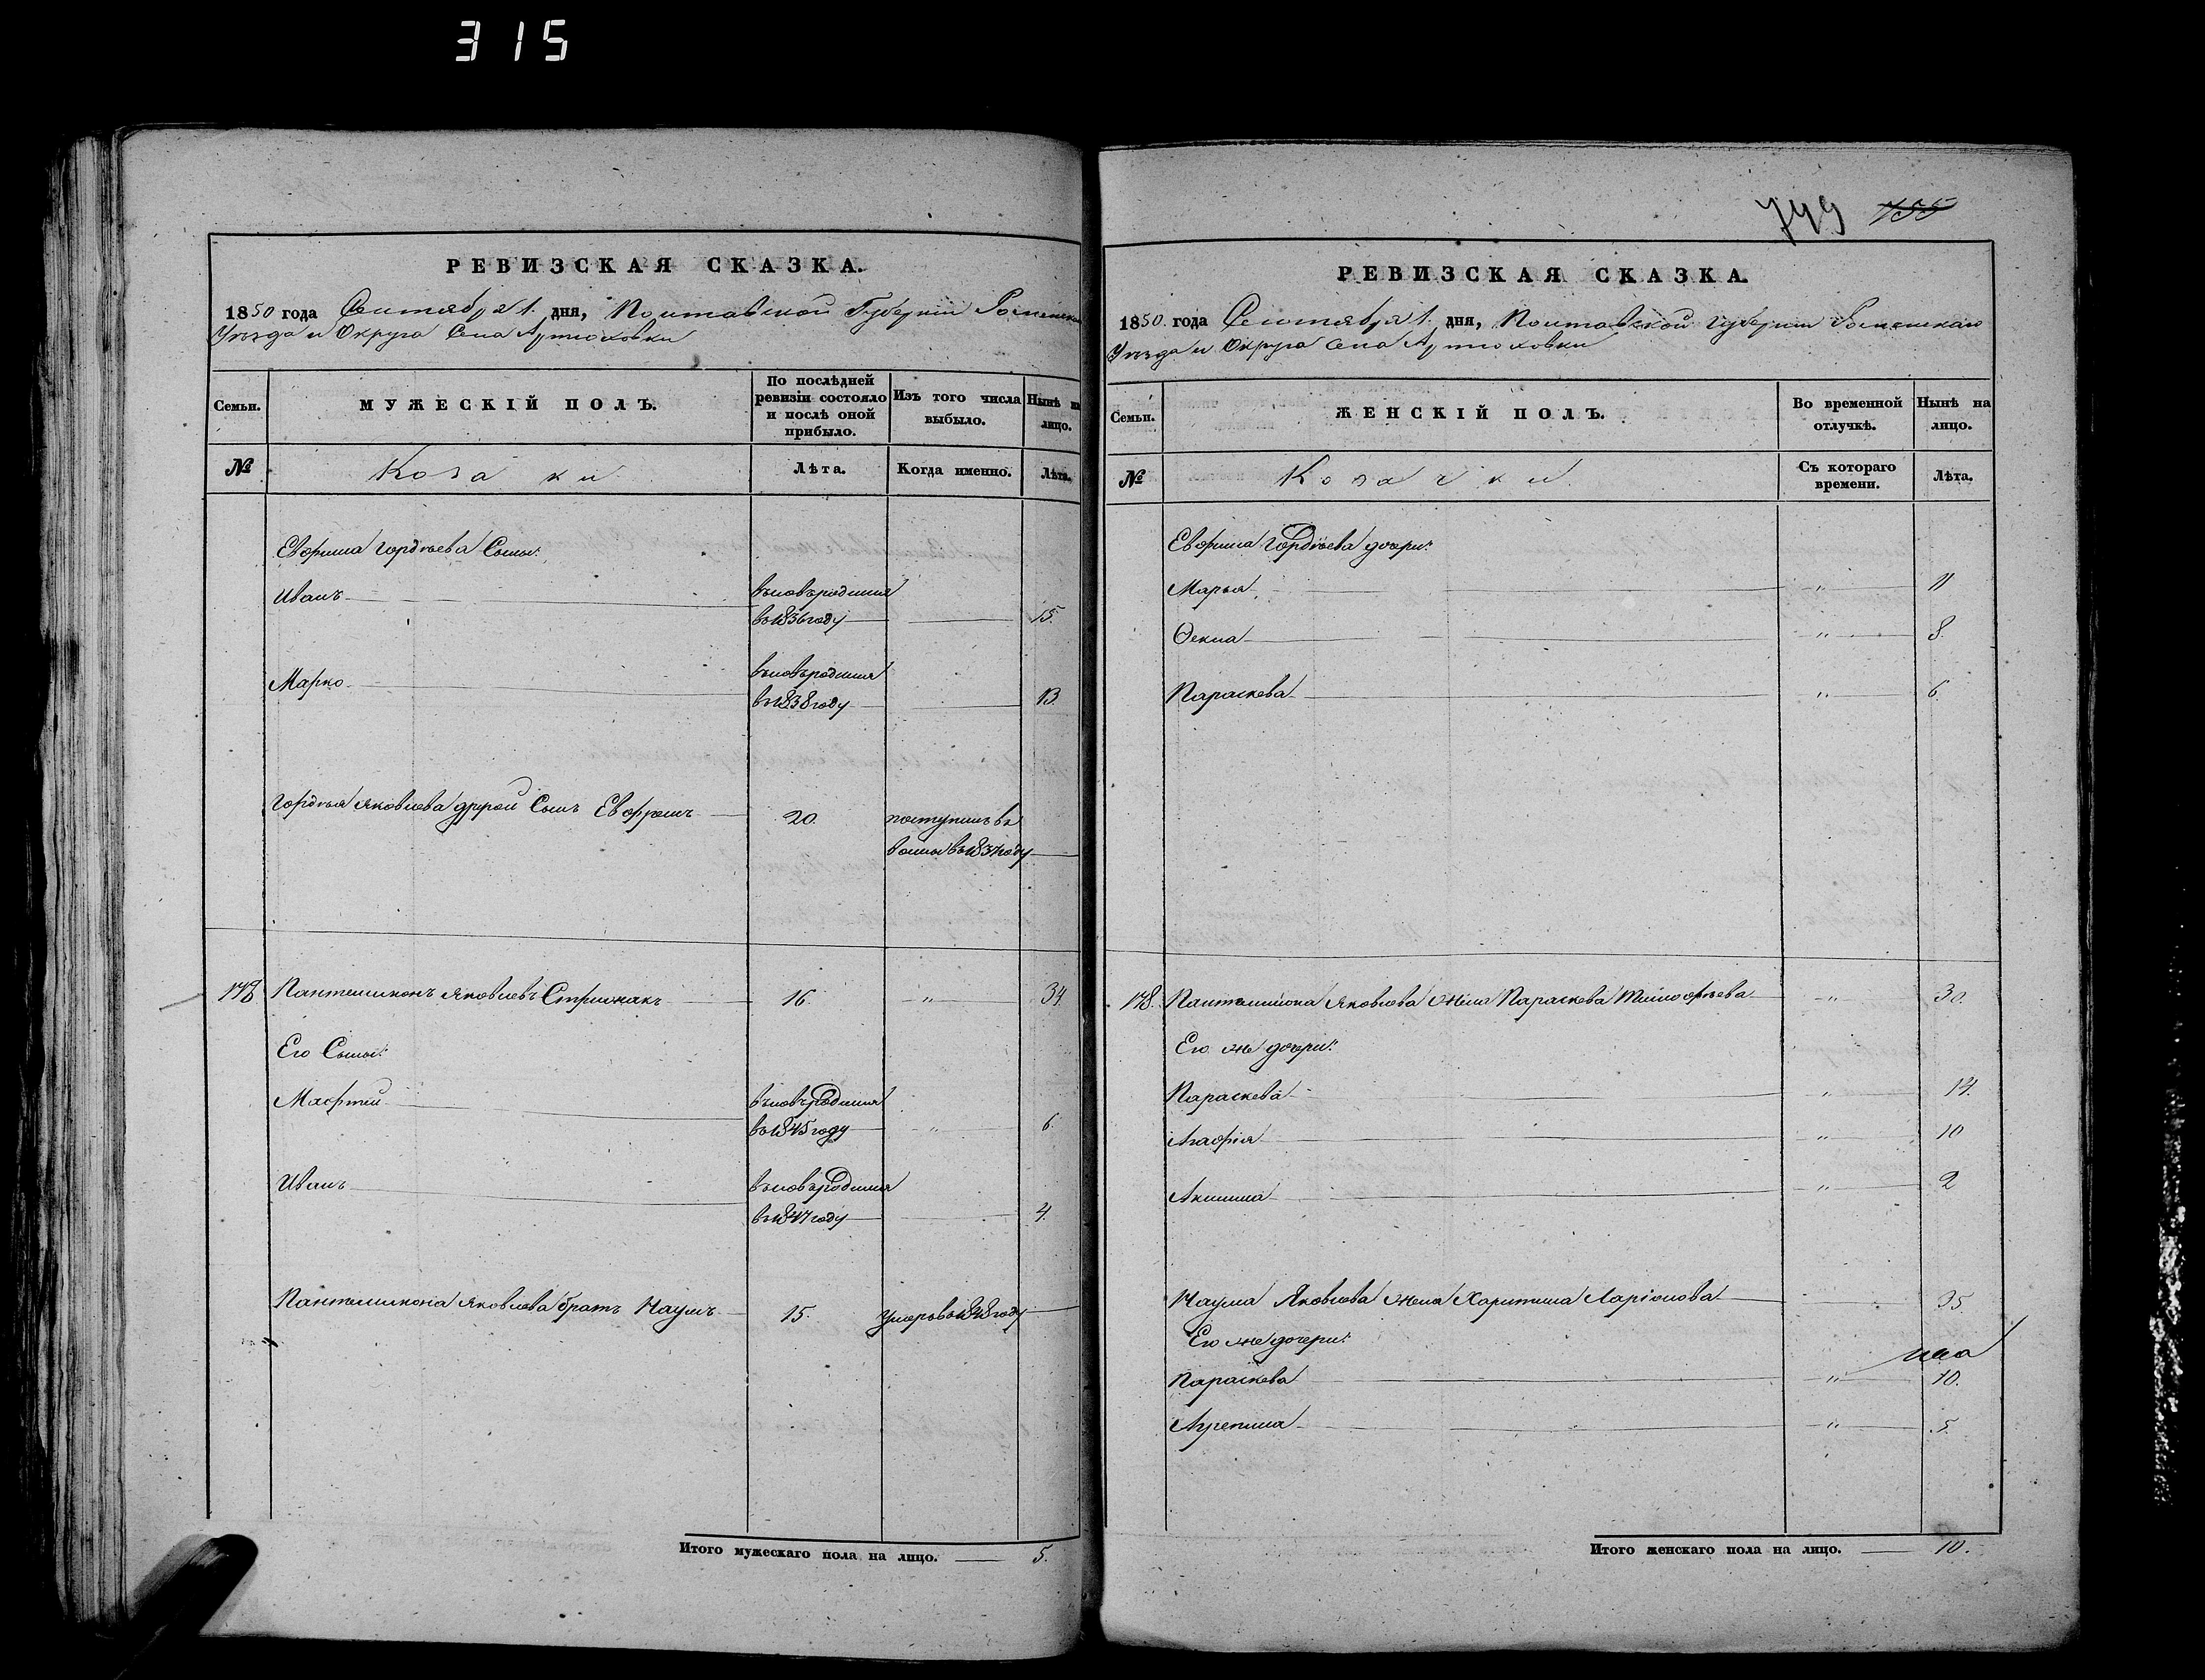 315
РЕВИЗСКАЯ СКАЗКА.
1850 года Сентября 1. дня, Полтавской Губерніи Роменскаго
Уѣзда и Округа Села Артюховки
Семьи.
МУЖЕСКІЙ ПОЛЪ.
По послѣдней ревизіи состояло и послѣ оной прибыло.
Изъ того числа выбыло.
Нынѣ на лицо.
№
Козаки
Лѣта.
Когда именно.
Лѣта.
Ефима Гордѣева Сыны:
Иванъ
вновьродился
въ 1836 году
15.
Марко
вновьродился
въ 1838 году
13.
Гордѣя Яковлева другой Сынъ
20.
поступилъ въ
въ 1837 году
178 Пантелимонъ Яковлевъ Стрижакъ 16. " 34.
Его Сыны:
Мафтей
вновьРодился
въ 1845 году " 6.
Иванъ
вновьРодился
въ 1847 году
4.
Пантелимона Яковлева братъ Наумъ 15. Умеръ въ 1848 году
Итого мужескаго пола на лицо. 5.
749 755
РЕВИЗСКАЯ СКАЗКА.
1850. года Сентября 1. дня, Полтавской губерніи Роменскаго
Уѣзда и Округа Села Артюховки
Семьи.
ЖЕНСКІЙ ПОЛЪ.
Во временной отлучкѣ.
Нынѣ на лицо.
№
Козачки
Съ котораго времени.
Лѣта.
Ефима Гордѣева дочери:
Марья " 11
Ѳекла " 8.
Параскева " 6.
178. Пантелимона Яковлева Жена Параскева Тимофѣева " 30.
Его же дочери:
Параскева " 14.
Агафія " 10
Акилина " 2
Наума Яковлева Жена Харитина Ларіонова 35.
Его же дочери:
Параскева " 10.
Агрепина " 5.
Итого женскаго пола на лицо. 10.